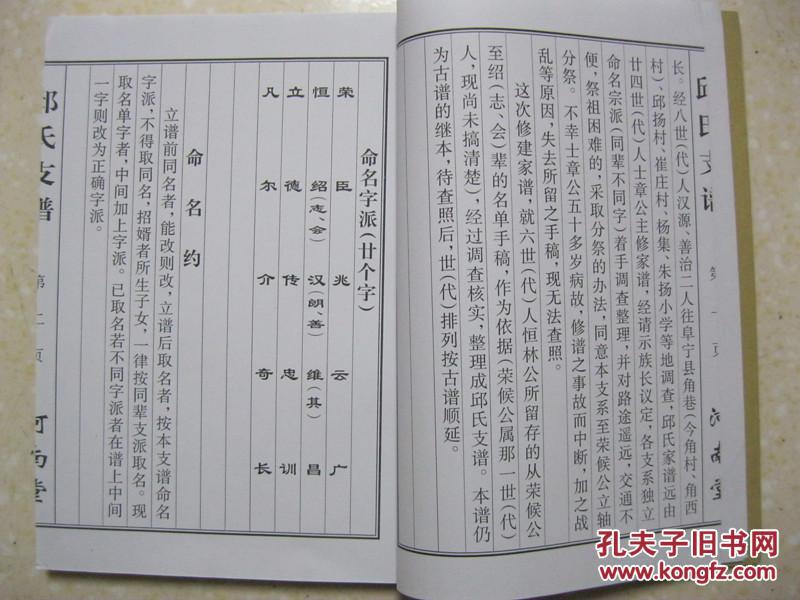 邱氏支谱
第一页
河南堂
长。经八世(代)人汉源、善治二人往阜宁县角巷(今角村、角西
村)、邱扬村、崔庄村、杨集、朱扬小学等地调查，邱氏家谱远由
廿四世(代)人士章公主修家谱，经请示族长议定，各支系独立
命名宗派(同辈不同字)着手调查整理，并对路途遥远，交通不
便，祭祖困难的，采取分祭的办法，同意本支系至荣候公立轴
分祭。不幸士章公五十多岁病故，修谱之事故而中断，加之战
乱等原因，失去所留之手稿，现无法查照。
这次修建家谱，就六世(代)人恒林公所留存的从荣候公
至绍(志、会)辈的名单手稿，作为依据(荣候公属那一世(代)
人，现尚未搞清楚)，经过调查核实，整理成邱氏支谱。本谱仍
为古谱的继本，待查照后，世(代)排列按古谱顺延。
命名字派(廿个字)
荣 臣 兆 云 广
恒 绍(志、会) 汉(朗、善) 维(其) 昌
立 德 传 忠 训
凡 尔 介 奇 长
命名约
立谱前同名者，能改则改，立谱后取名者，按本支谱命名
字派，不得取同名，招婿者所生子女，一律按同辈支派取名。现
取名单字者，中间加上字派。已取名若不同字派者在谱上中间
一字则改为正确字派。
邱氏支谱
第二页
河南堂
孔夫子旧书网
www.kongfz.com